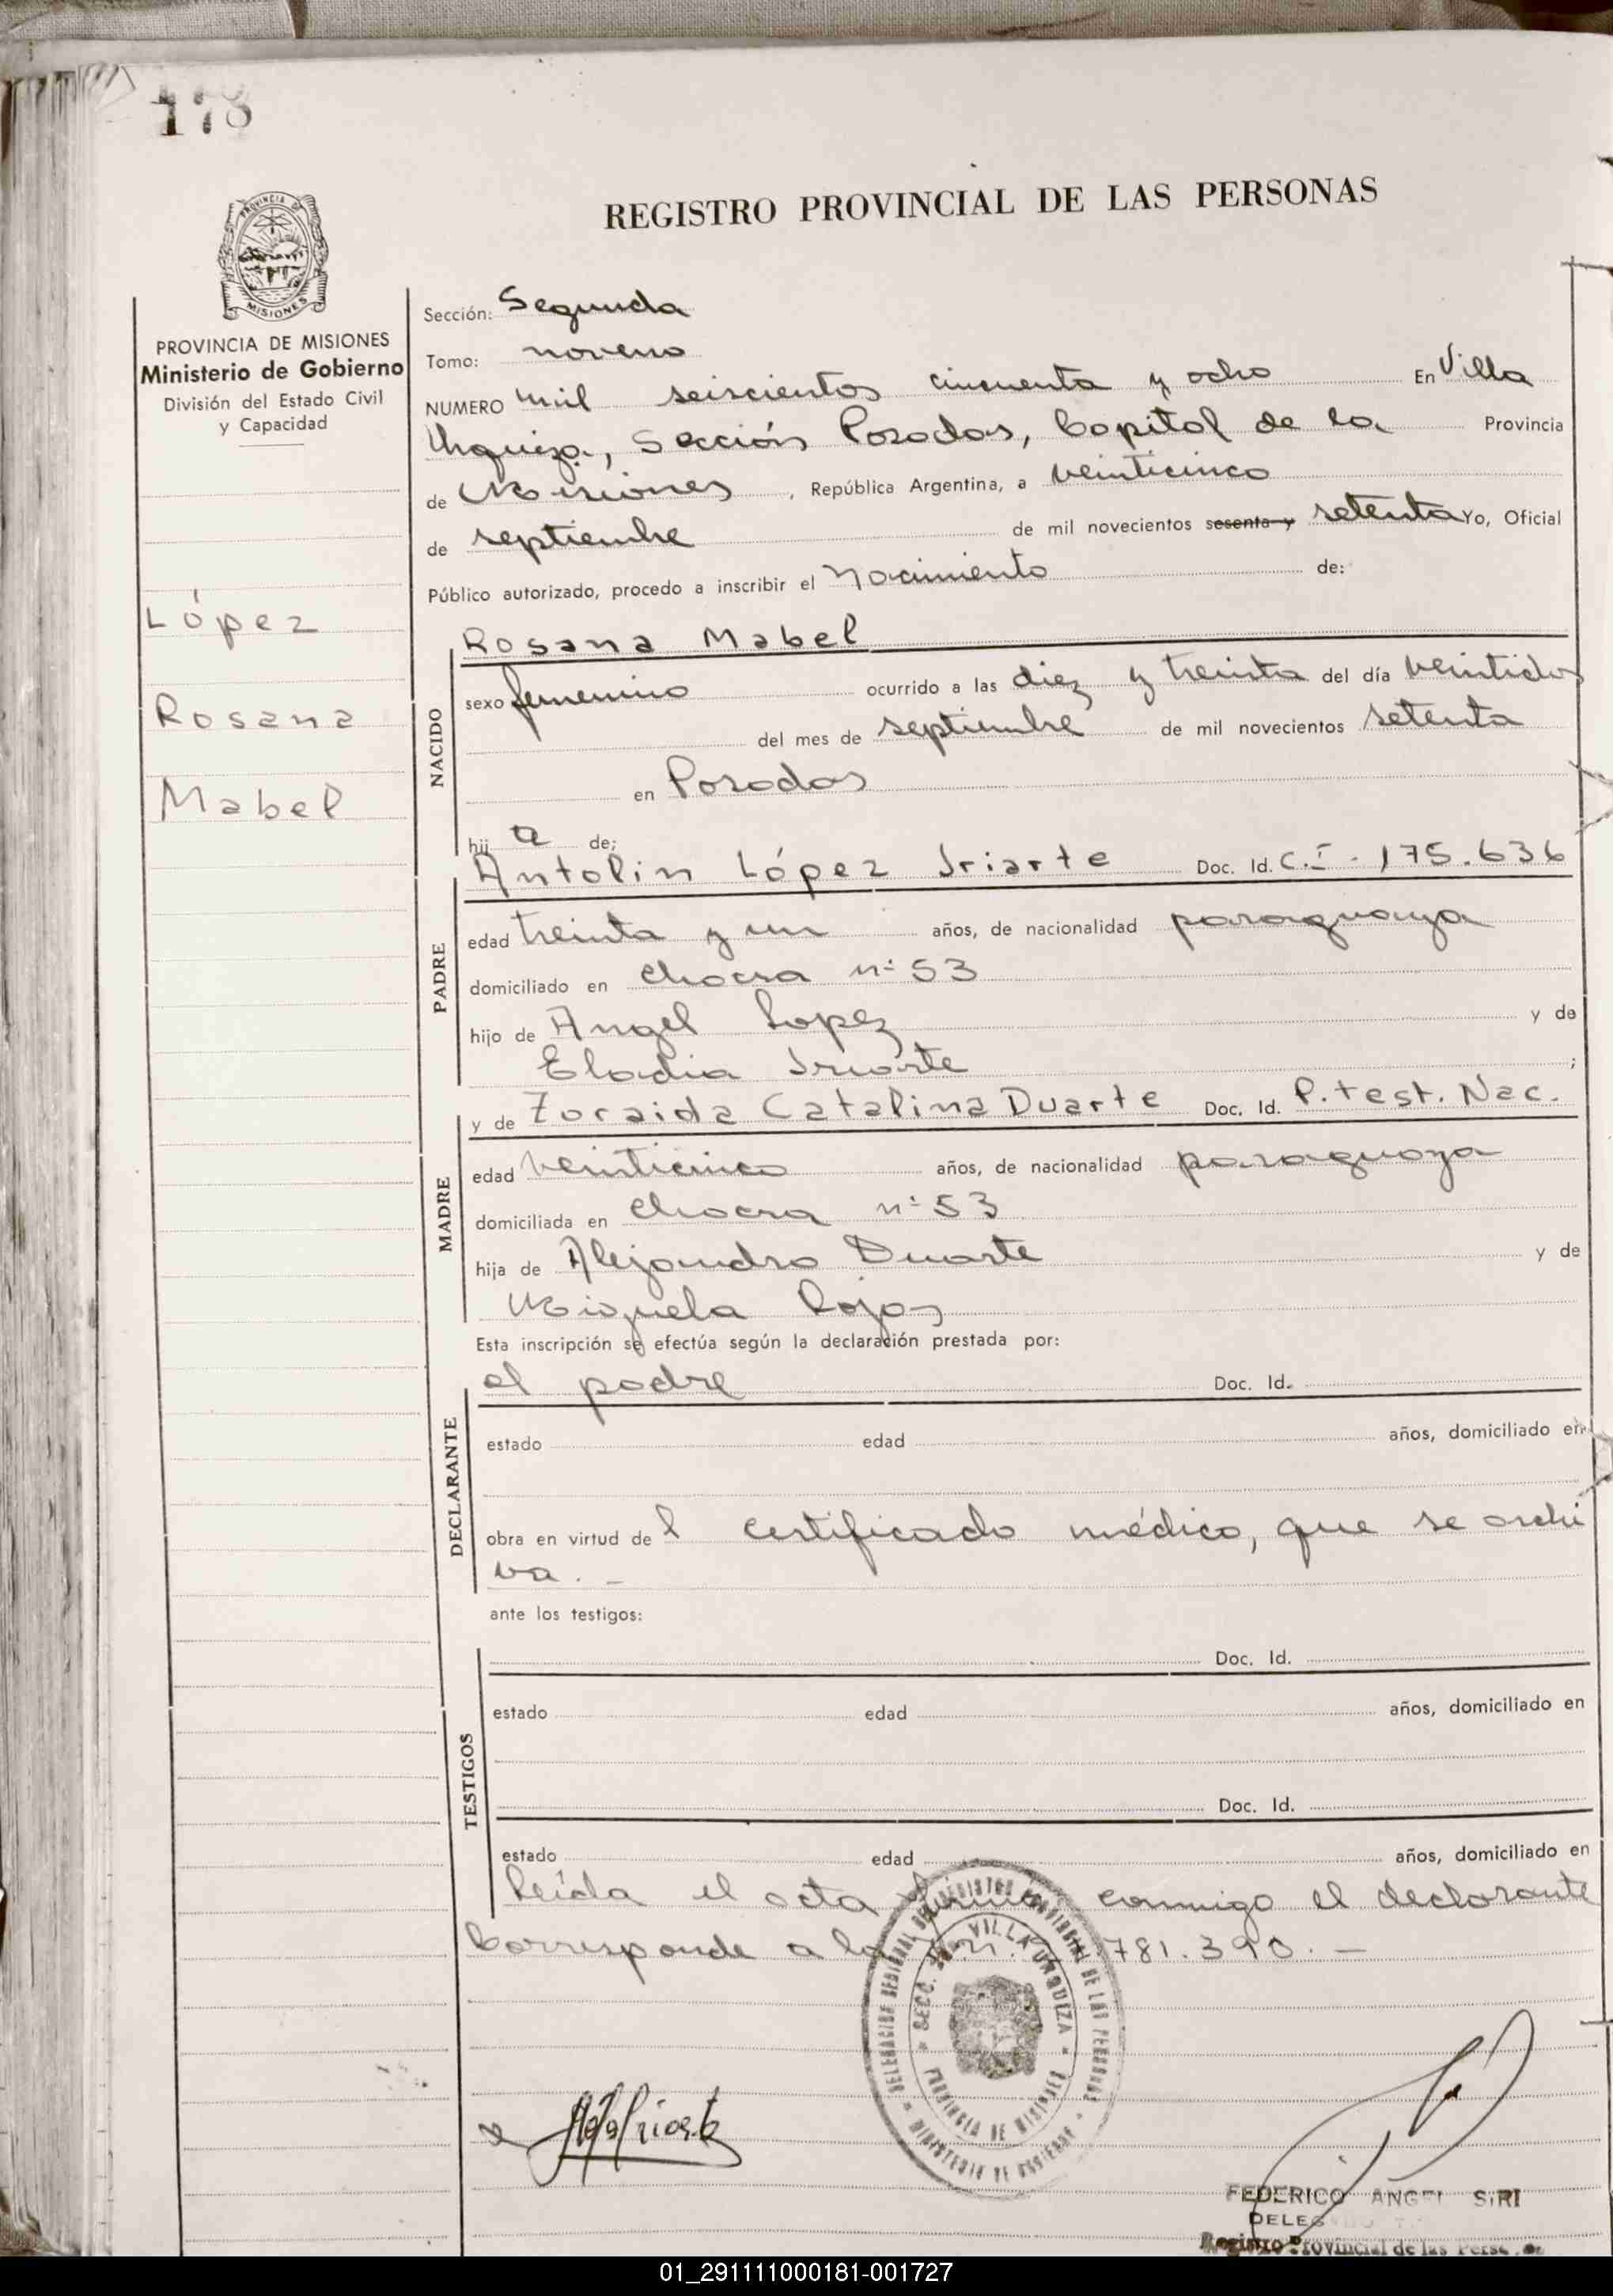 178
REGISTRO PROVINCIAL DE LAS PERSONAS
MISIONES
PROVINCIA DE MISIONES
Ministerio de Gobierno
División del Estado Civil
y Capacidad
López
Rosana
Mabel
Sección: Segunda
Tomo: noveno
NUMERO mil seiscientos cincuenta y ocho En Villa
Urquiza, Sección Posadas, Capital de la Provincia
de Misiones, República Argentina, a veinticinco
de septiembre de mil novecientos sesenta y setenta Yo, Oficial
Público autorizado, procedo a inscribir el Nacimiento de:
NACIDO
Rosana Mabel
sexo femenino ocurrido a las diez y treinta del día veintidos
del mes de septiembre de mil novecientos setenta
en Posadas
hij a de;
PADRE
Antolin López Iriarte Doc. Id. C.I. 175.636
edad treinta y un años, de nacionalidad paraguaya
domiciliado en chacra nº 53
hijo de Angel Lopez y de
Eladia Iriarte ;
MADRE
y de Zoraida Catalina Duarte Doc. Id. P. test. Nac.
edad veinticinco años, de nacionalidad paraguaya
domiciliada en chacra nº 53
hija de Alejandro Duarte y de
Miguela Rojas
Esta inscripción se efectúa según la declaración prestada por:
DECLARANTE
el padre Doc. Id.
estado edad años, domiciliado en
obra en virtud de l certificado médico, que se archi
va. -
ante los testigos:
TESTIGOS
Doc. Id.
estado edad años, domiciliado en
Doc. Id.
estado edad años, domiciliado en
Leída el acta firma conmigo el declarante
Corresponde a la 781.390. -
VILLA URQUIZA
PROVINCIA DE MISIONES
MINISTERIO DE GOBIERNO
FEDERICO ANGEL SIRI
Registro Provincial de las
01_291111000181-001727